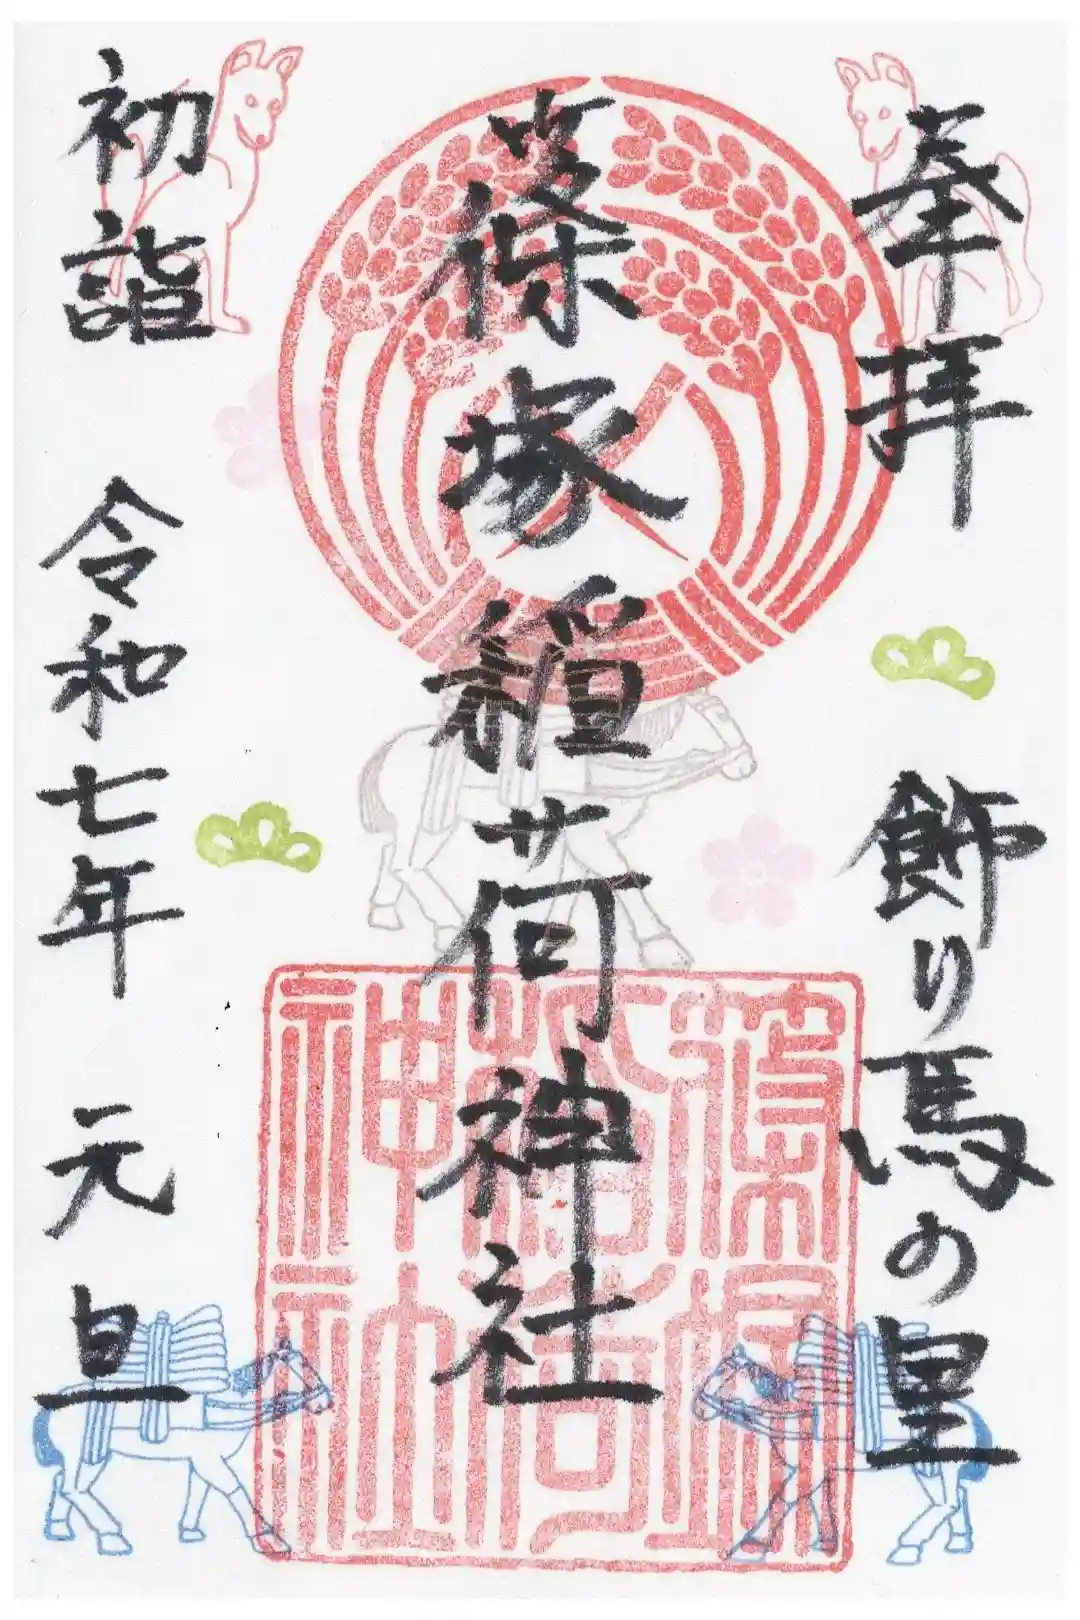 奉拝
飾り馬の里
篠塚稲荷神社
初詣
令和七年
元旦
篠塚
稲荷
神社